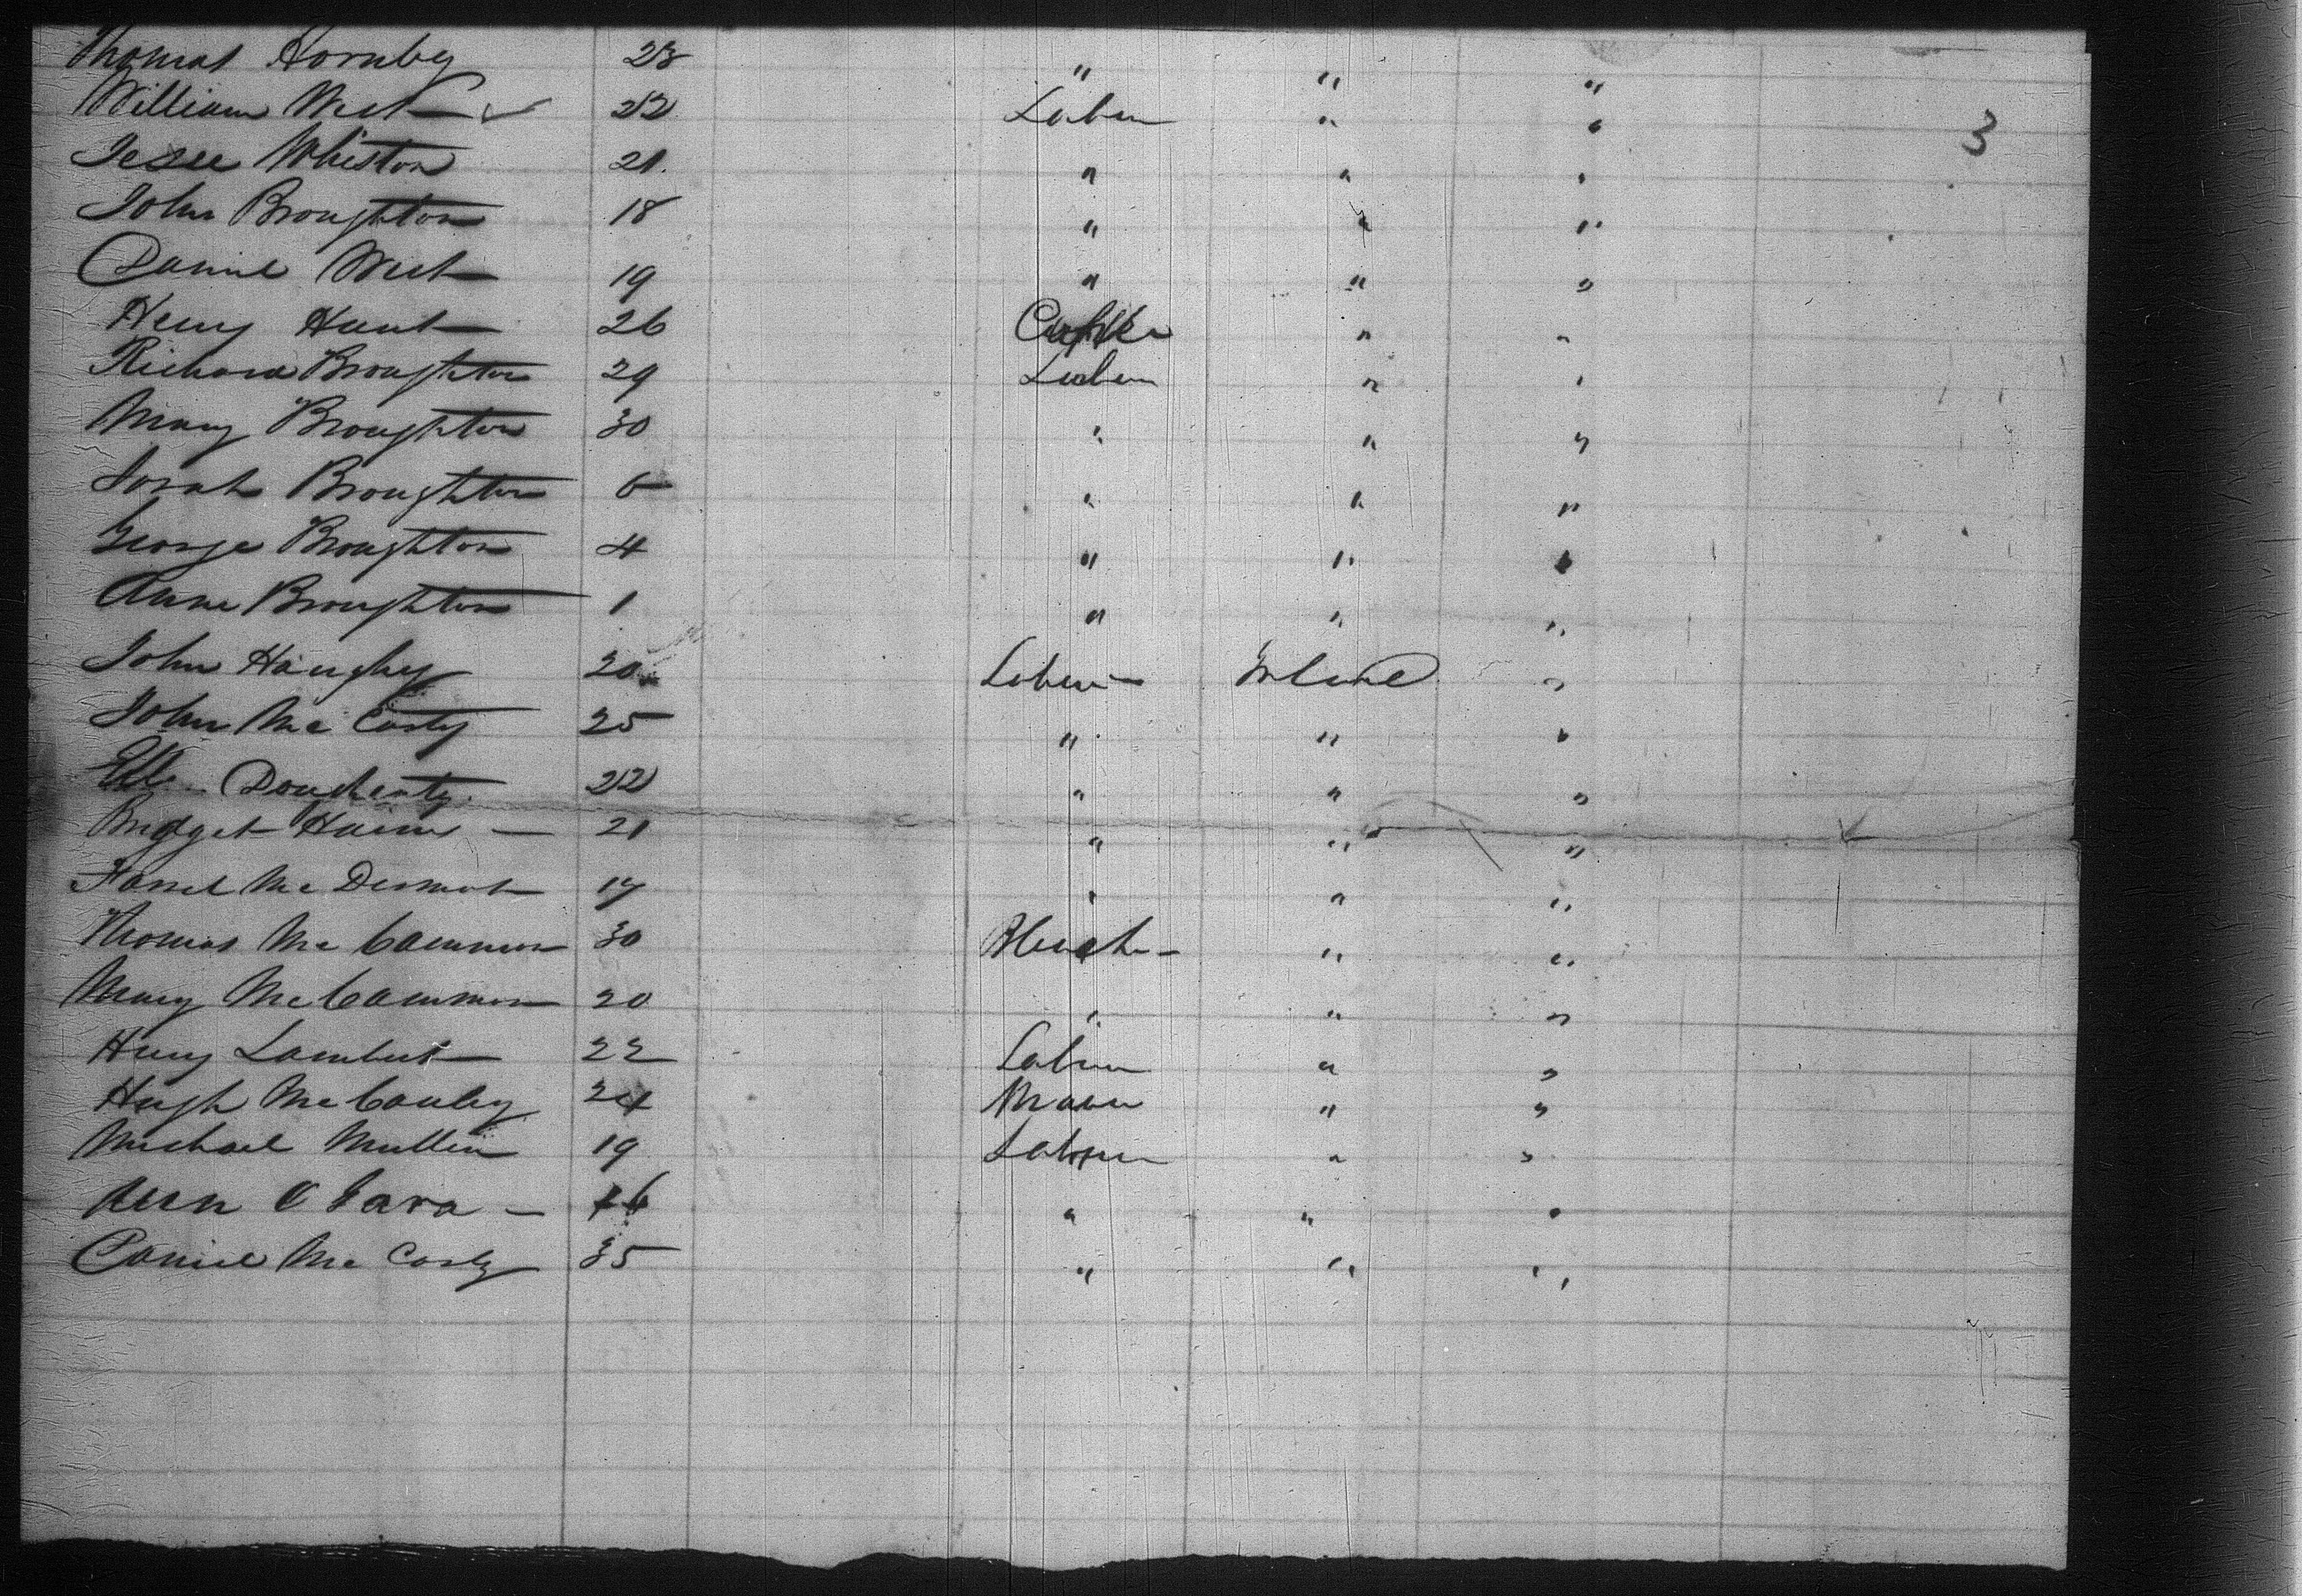 Thomas Hornby 23 " " "
William West 22 Labour " "
3
Jesse Whiston 21 " " "
John Broughton 18 " " "
Daniel West 19 " " "
Henry Hunt 26 " "
Richard Broughton 29 Labour " "
Mary Broughton 30 " " "
Sarah Broughton 6 " " "
George Broughton 4 " " "
Anne Broughton 1 " " "
John Haughey 20 Labour Ireland "
John Mc Carty 25 " " "
Dougherty 22 " " "
Bridget 21 " " "
Mc Dermot 17 " " "
Thomas Mc Cammon 30 " "
Mary Mc Cammon 20 " " "
Henry Lambert 22 Labour " "
Hugh Mc Cauley 24 Mason " "
Michael Mullin 19 Labour " "
Ann O Gara 16 " " "
Daniel Mc Carty 35 " " "